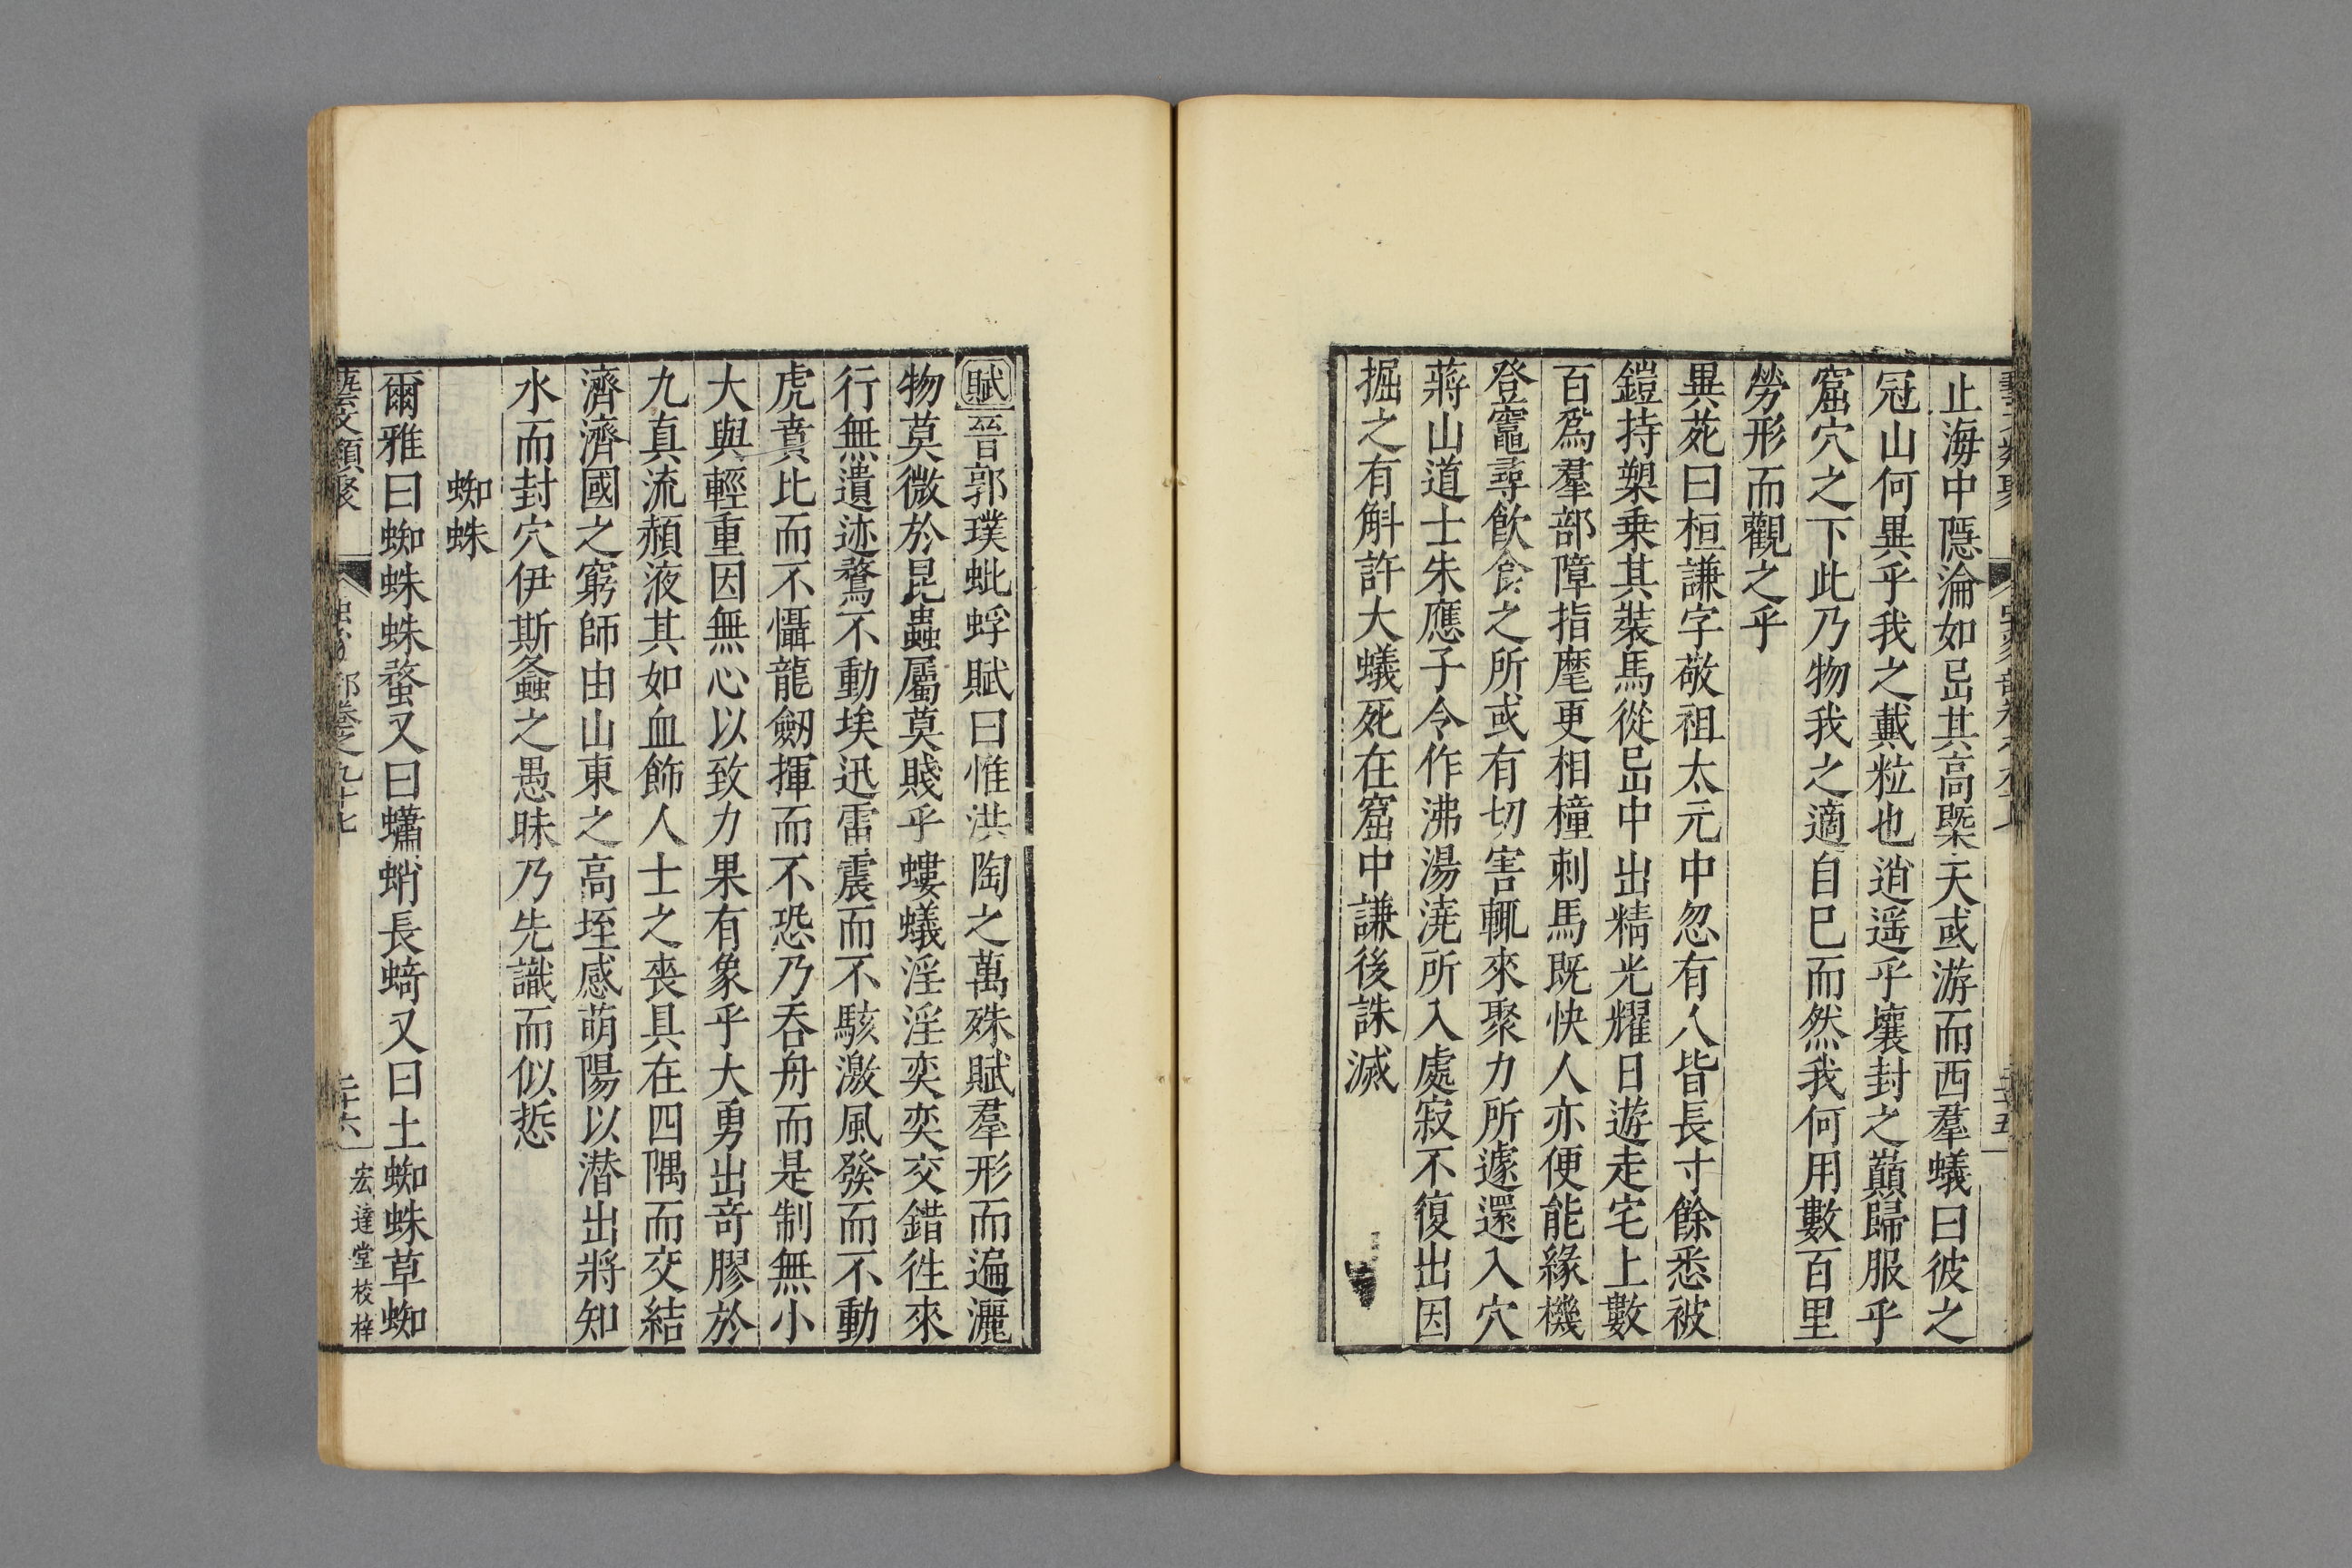 止海中隱淪如𡵆其高槩天或游而西羣蟻曰彼之
冠山何異乎我之戴粒也逍遥乎壤封之巔歸服乎
窟穴之下此乃物我之適自巳而然我何用數百里
勞形而觀之乎
異苑曰桓謙字敬祖太元中忽有人皆長寸餘悉被
鎧持槊乗其裝馬從𡵆中出精光耀日遊走宅上數
百爲羣部障指麾更相橦刺馬既快人亦便能緣機
登竈尋飲食之所或有切害輒來聚力所遽還入穴
蔣山道士朱應子令作沸湯澆所入處寂不復出因
掘之有斛許大蟻死在窟中謙後誅滅
賦晉郭璞蚍蜉賦曰惟洪陶之萬殊賦羣形而遍灑
物莫微於昆蟲屬莫賤乎螻蟻淫淫奕奕交錯徃來
行無遺迹騖不動埃迅雷震而不駭激風發而不動
虎賁比而不懾龍劒揮而不恐乃吞舟而是制無小
大與輕重因無心以致力果有象乎大勇出竒膠於
九真流頳液其如血飾人士之喪具在四隅而交結
濟濟國之窮師由山東之高垤感萌陽以潜出將知
水而封穴伊斯螽之愚昧乃先識而似悊
蜘蛛
爾雅曰蜘蛛蛛蝥又曰蠨蛸長蜻又曰土蜘蛛草蜘
藝文類聚
部卷之九十七
二十六
宏達堂校梓